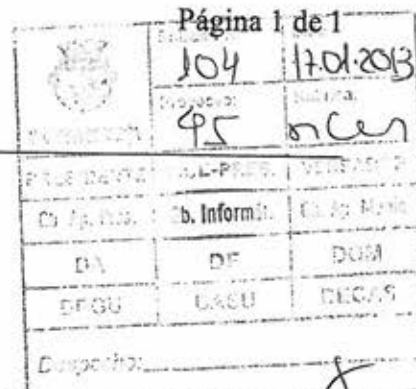 Página 1 de 1
104 17.01.2013
Processo: Rubrica:
95
PRESIDENTE VICE-PRES. VEREADOR
Gb. Ap. Pres. Gb. Informát. Gb. Ap. Munic
DA DF DOM
DPGU DASU DECAS
Despacho: